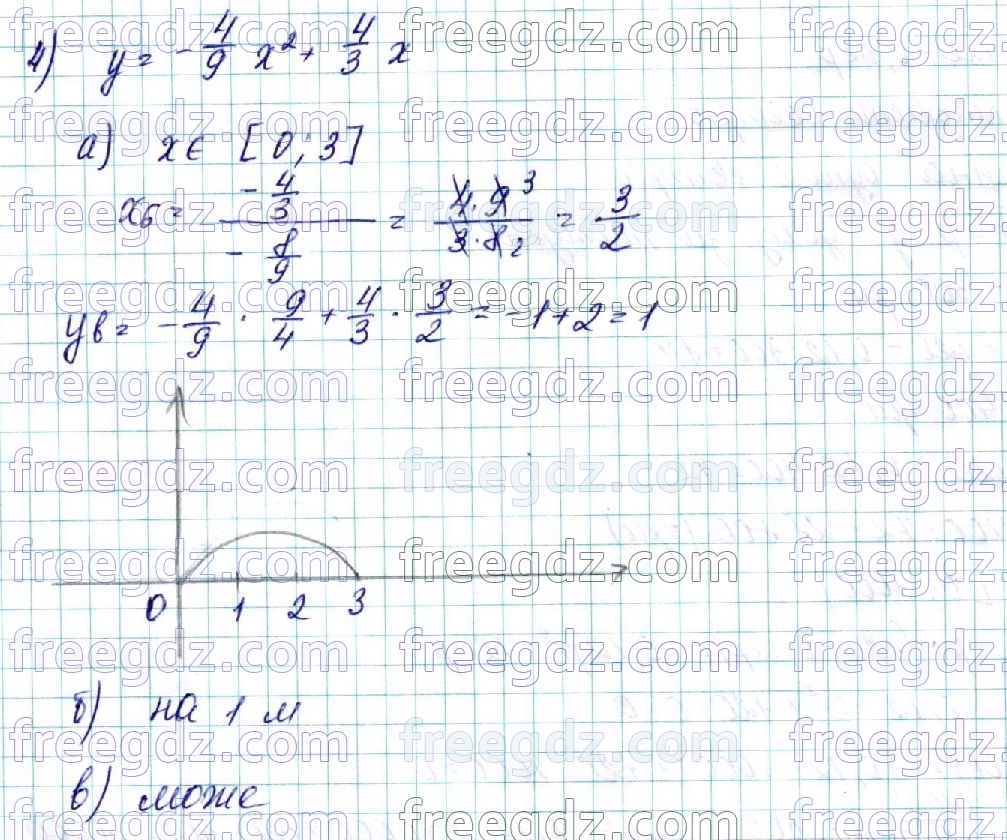 4) y = -4/9 x² + 4/3 x
а) x ∈ [0; 3]
xв = (-4/3)/(-8/9) = (4·9 3)/(3·8 2) = 3/2
yв = -4/9 · 9/4 + 4/3 · 3/2 = -1 + 2 = 1
0 1 2 3
б) на 1 м
в) може
freegdz.com